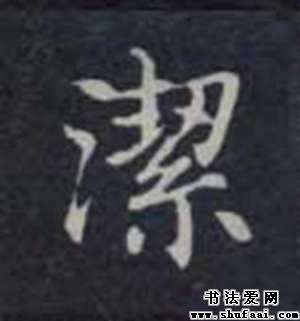 潔
书法爱网
www.shufaai.com